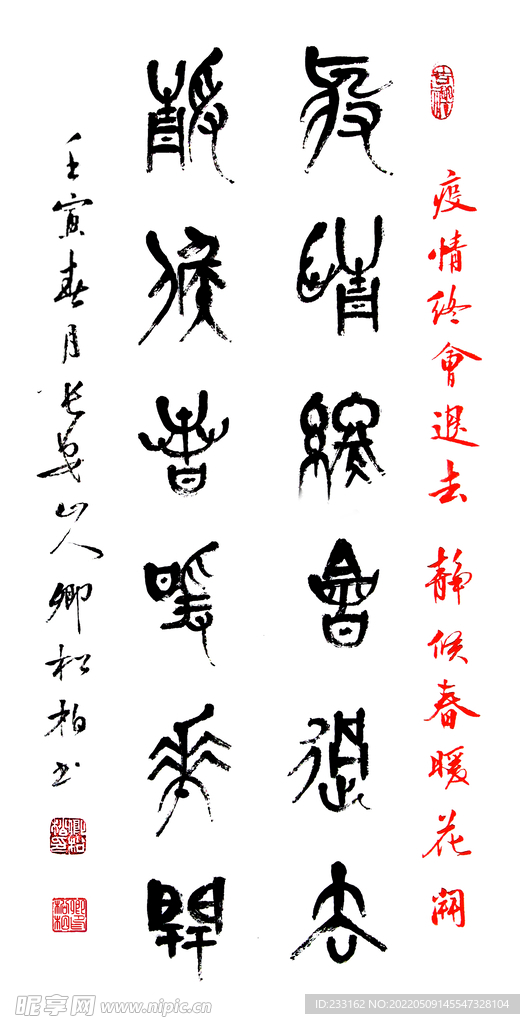 疫情终會退去 静候春暖花開
疫情終會退去
静候春暖花開
壬寅春月長安山人卿松柏书
昵享网 www.nipic.cn
ID:233162 NO:20220509145547328104